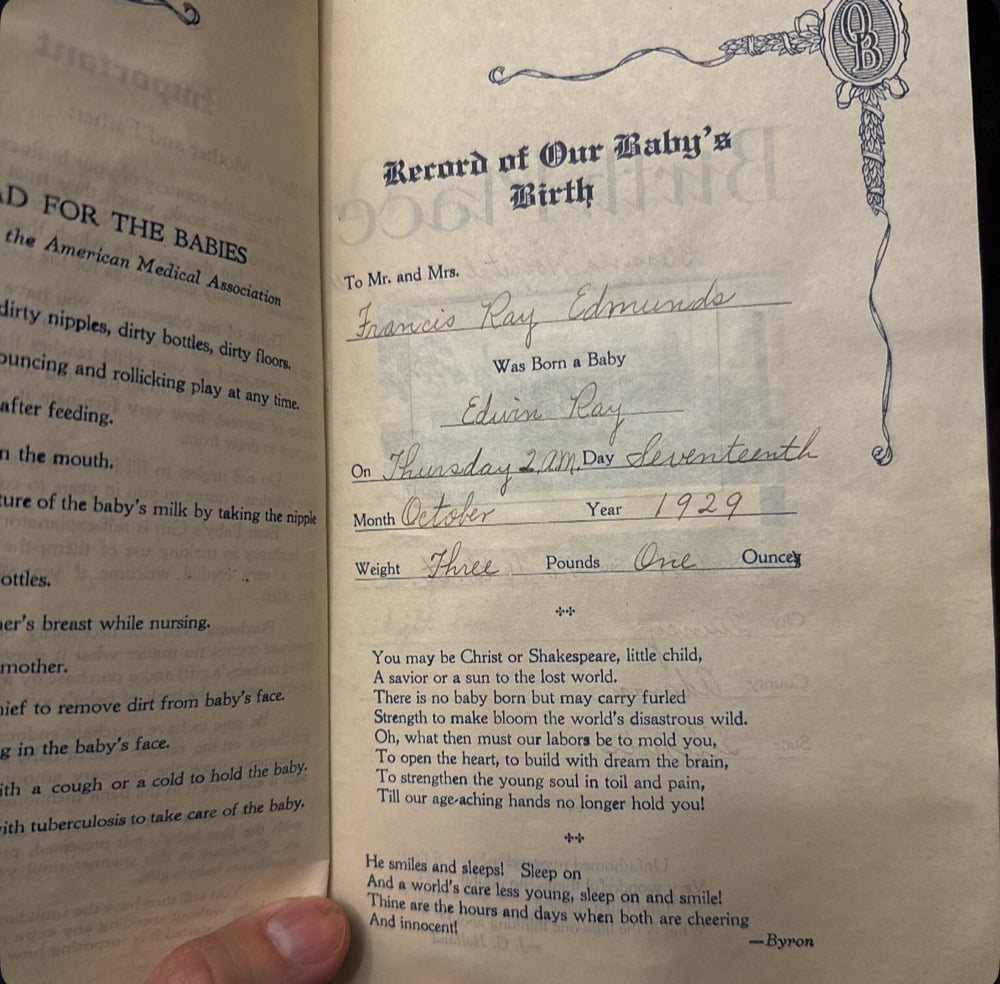 AD FOR THE BABIES
the American Medical Association
dirty nipples, dirty bottles, dirty floors.
ouncing and rollicking play at any time.
after feeding.
n the mouth.
ture of the baby's milk by taking the nipple
ottles.
er's breast while nursing.
mother.
hief to remove dirt from baby's face.
g in the baby's face.
ith a cough or a cold to hold the baby.
ith tuberculosis to take care of the baby.
OB
Record of Our Baby's
Birth
To Mr. and Mrs.
Francis Ray Edmunds
Was Born a Baby
Edwin Ray
On Thursday 2 A.M. Day Seventeenth
Month October Year 1929
Weight Three Pounds One Ounces
You may be Christ or Shakespeare, little child,
A savior or a sun to the lost world.
There is no baby born but may carry furled
Strength to make bloom the world's disastrous wild.
Oh, what then must our labors be to mold you,
To open the heart, to build with dream the brain,
To strengthen the young soul in toil and pain,
Till our age-aching hands no longer hold you!
He smiles and sleeps! Sleep on
And a world's care less young, sleep on and smile!
Thine are the hours and days when both are cheering
And innocent!
—Byron